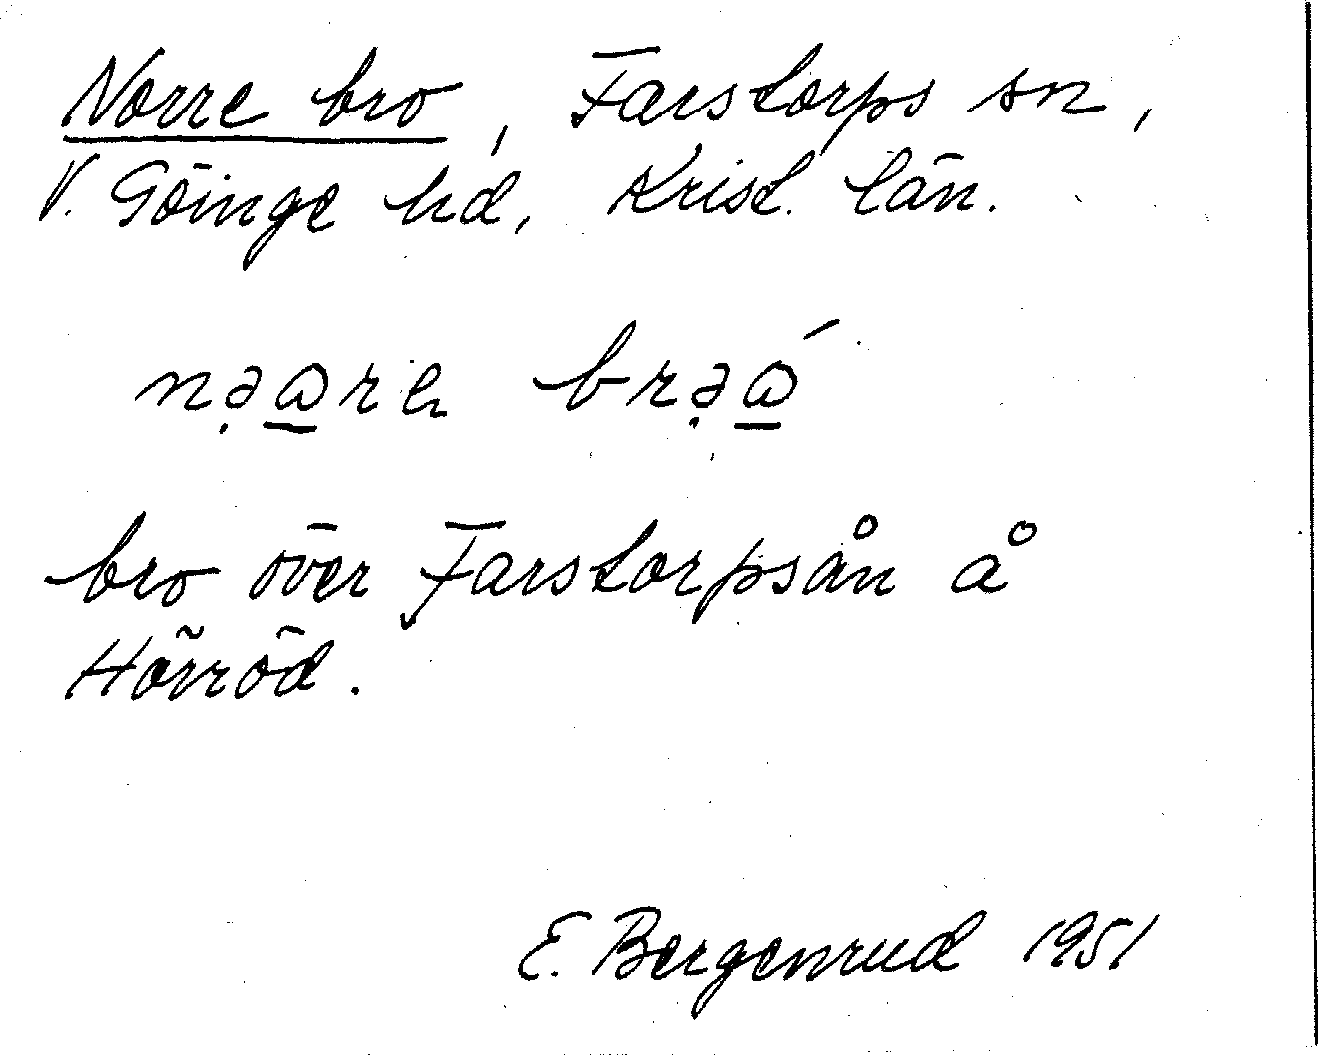 Norre bro, Farstorps sn,
V. Göinge hd, Krist. län.
nə̣a̲re brə̣á̲
bro över Farstorpsån å
Hörröd.
E. Bergenrud 1951